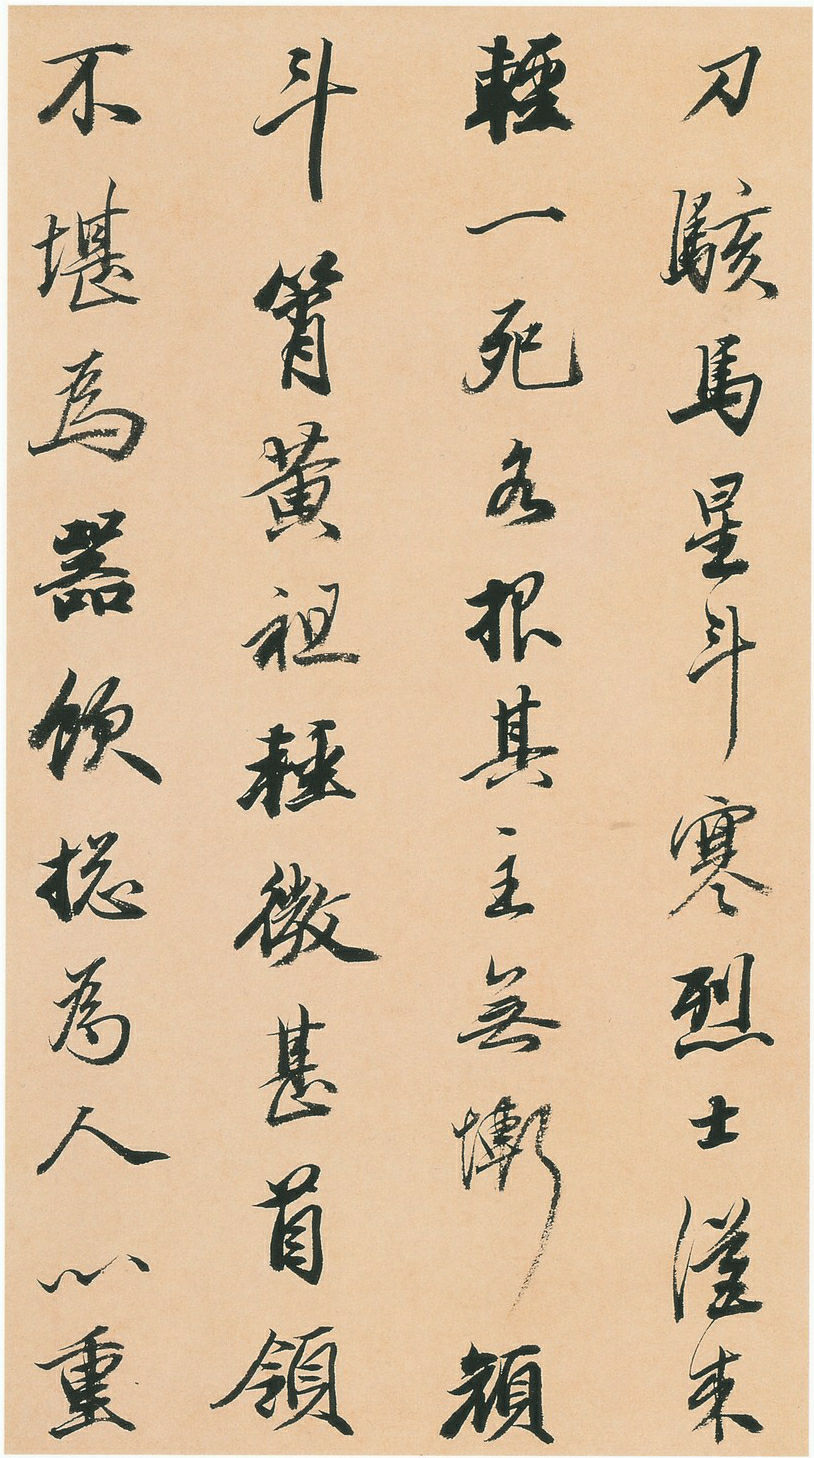 刀駭馬星斗寒烈士從來
輕一死各報其主無慚顏
斗筲黄祖輕微甚首領
不堪為器飲摠為人心重